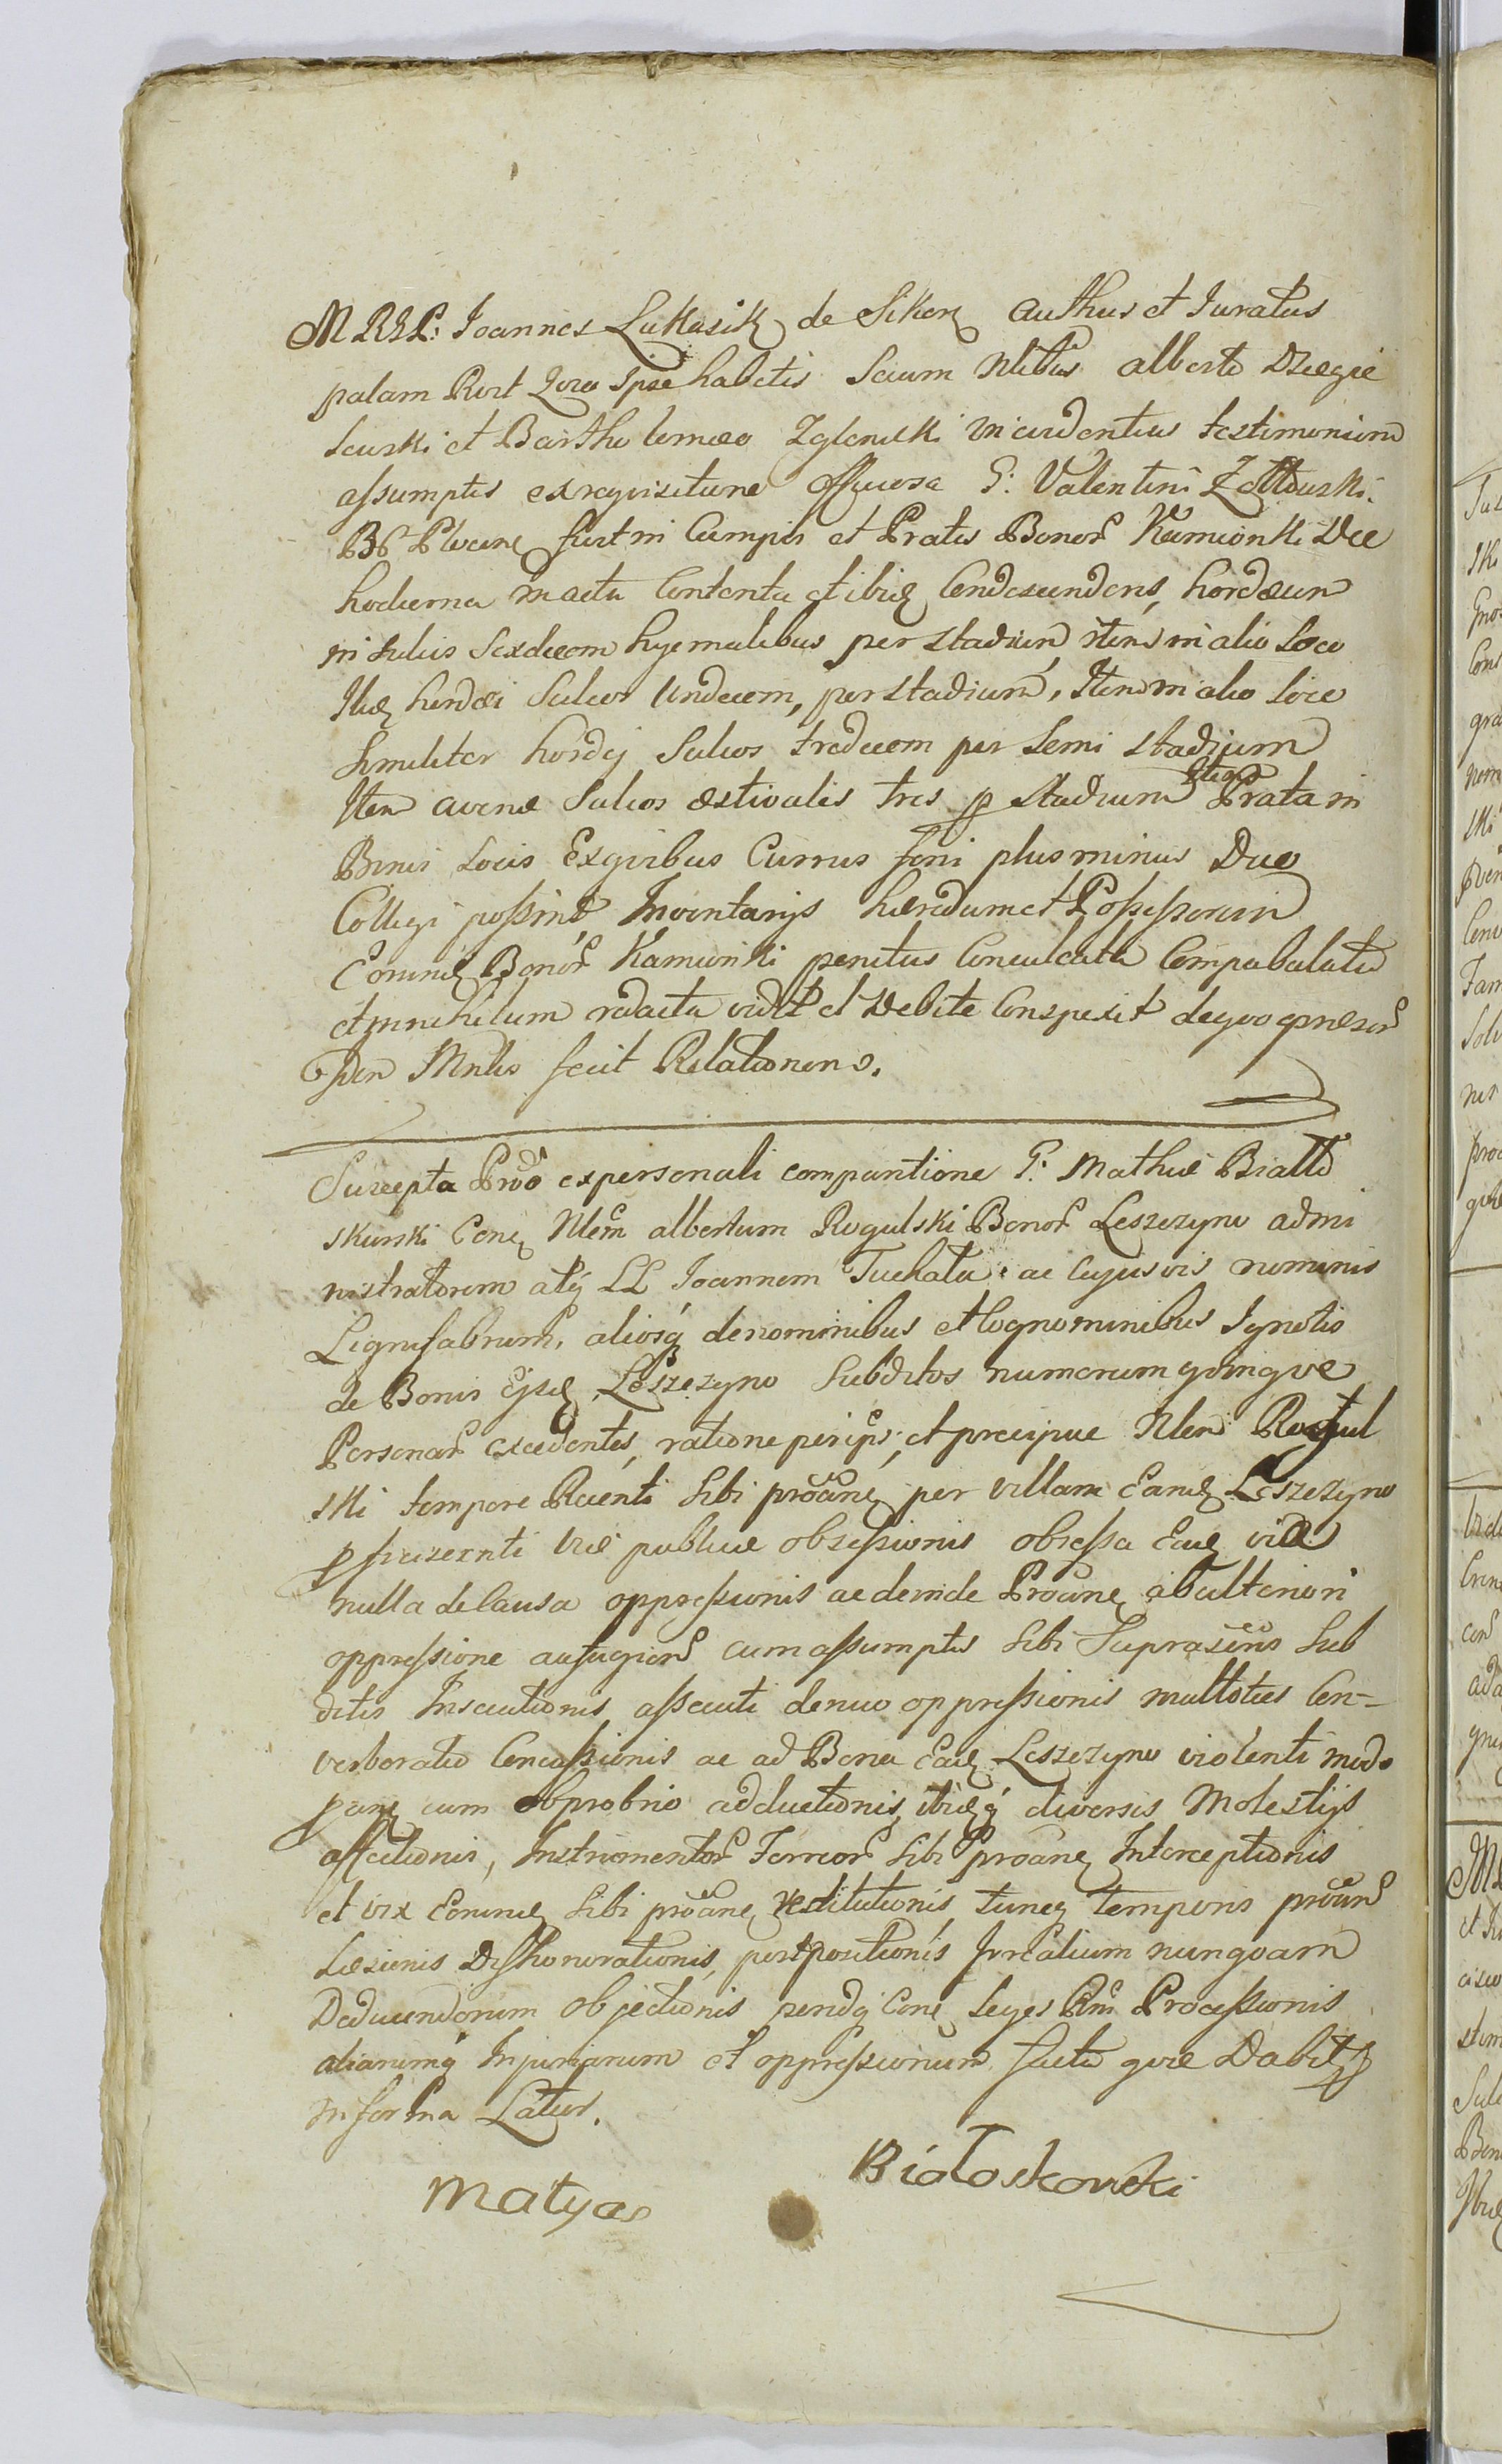 M R G L: Joannes Lukasik de Sikorz authus et Juratus
palam Rurt quia ipse habitis Secum Nlibus alberto Dzegie
leuski et Bartholomeo Zglenicki in evidentius testimonium
assumptis ex requisitione Officiosa G: Valentini Zołtowski
B P Płocens fuit in Campis et Pratis Bonor Kamionki Die
hodierna in actu Contenta et ibid Condescendens, hordeum
in sulcis Sexdecem hyemalibus per stadium, item in alio Loco
Ibid hordei Sulcos Undecem, per stadium, Item in alio Loco
similiter hordej Sulcos tredecem per Semi stadjum
Item avenæ Sulcos æstivales tres p stadium Item Prata in
Binis Locis Ex qvibus Currus foeni plus minus Duo
Colligi possint, Inventarijs hæredum et Possessorum
Eorund Bonor Kamionki penitus Conculcata Compabulata
et in nihilum redacta vidit et Debite Conspexit de qvo præsen
Iden Mnlis fecit Relationem.
Suscepta Prõo ex personali comparitione G: Mathiæ Białło
skurski Cone Nlem albertum Rogulski Bonor Leszczyno admi
nistratorem atq LL Joannem Tuchała ac cujusvis nominis
Lignifabrum, aliosq de nominibus et Cognominibus Ignotis
de Bonis Ejsd Leszczyno Subditos numerum qvinqve
Personar excedentes, ratione per ips, et præcipue Nlem Rogul
ski tempore Recenti Sibi proane per villam Eand Leszczyno
p fraiseenti viæ publicæ obsessionis obsessa Ead via
nulla de Causa oppressionis ac deinde Proane ab ulteriori
oppressione aufugien cum assumptis Sibi Suprascris Sub
ditis Insecutionis assecuti denuo oppressionis multoties Con-
verberatio Concassionis ac ad Bona Ead Leszczyno violenti modo
pane cum obprobrio adductionis, ibidq diversis Molestijs
affectionis, Instrumentor Ferreor Sibi proane Interceptionis
et vix Eorund Sibi proane restitutionis tuneq temporis proan
Læsionis Dishonorationis, postpositionis Jvrcalium nunqvam
Deducendorum objectionis pendq Cone Leges Rni Processionis
aliarumq Injuriarum et oppressionum facta qvæ Dabit
in forma Latior.
Matyas Białoskorski